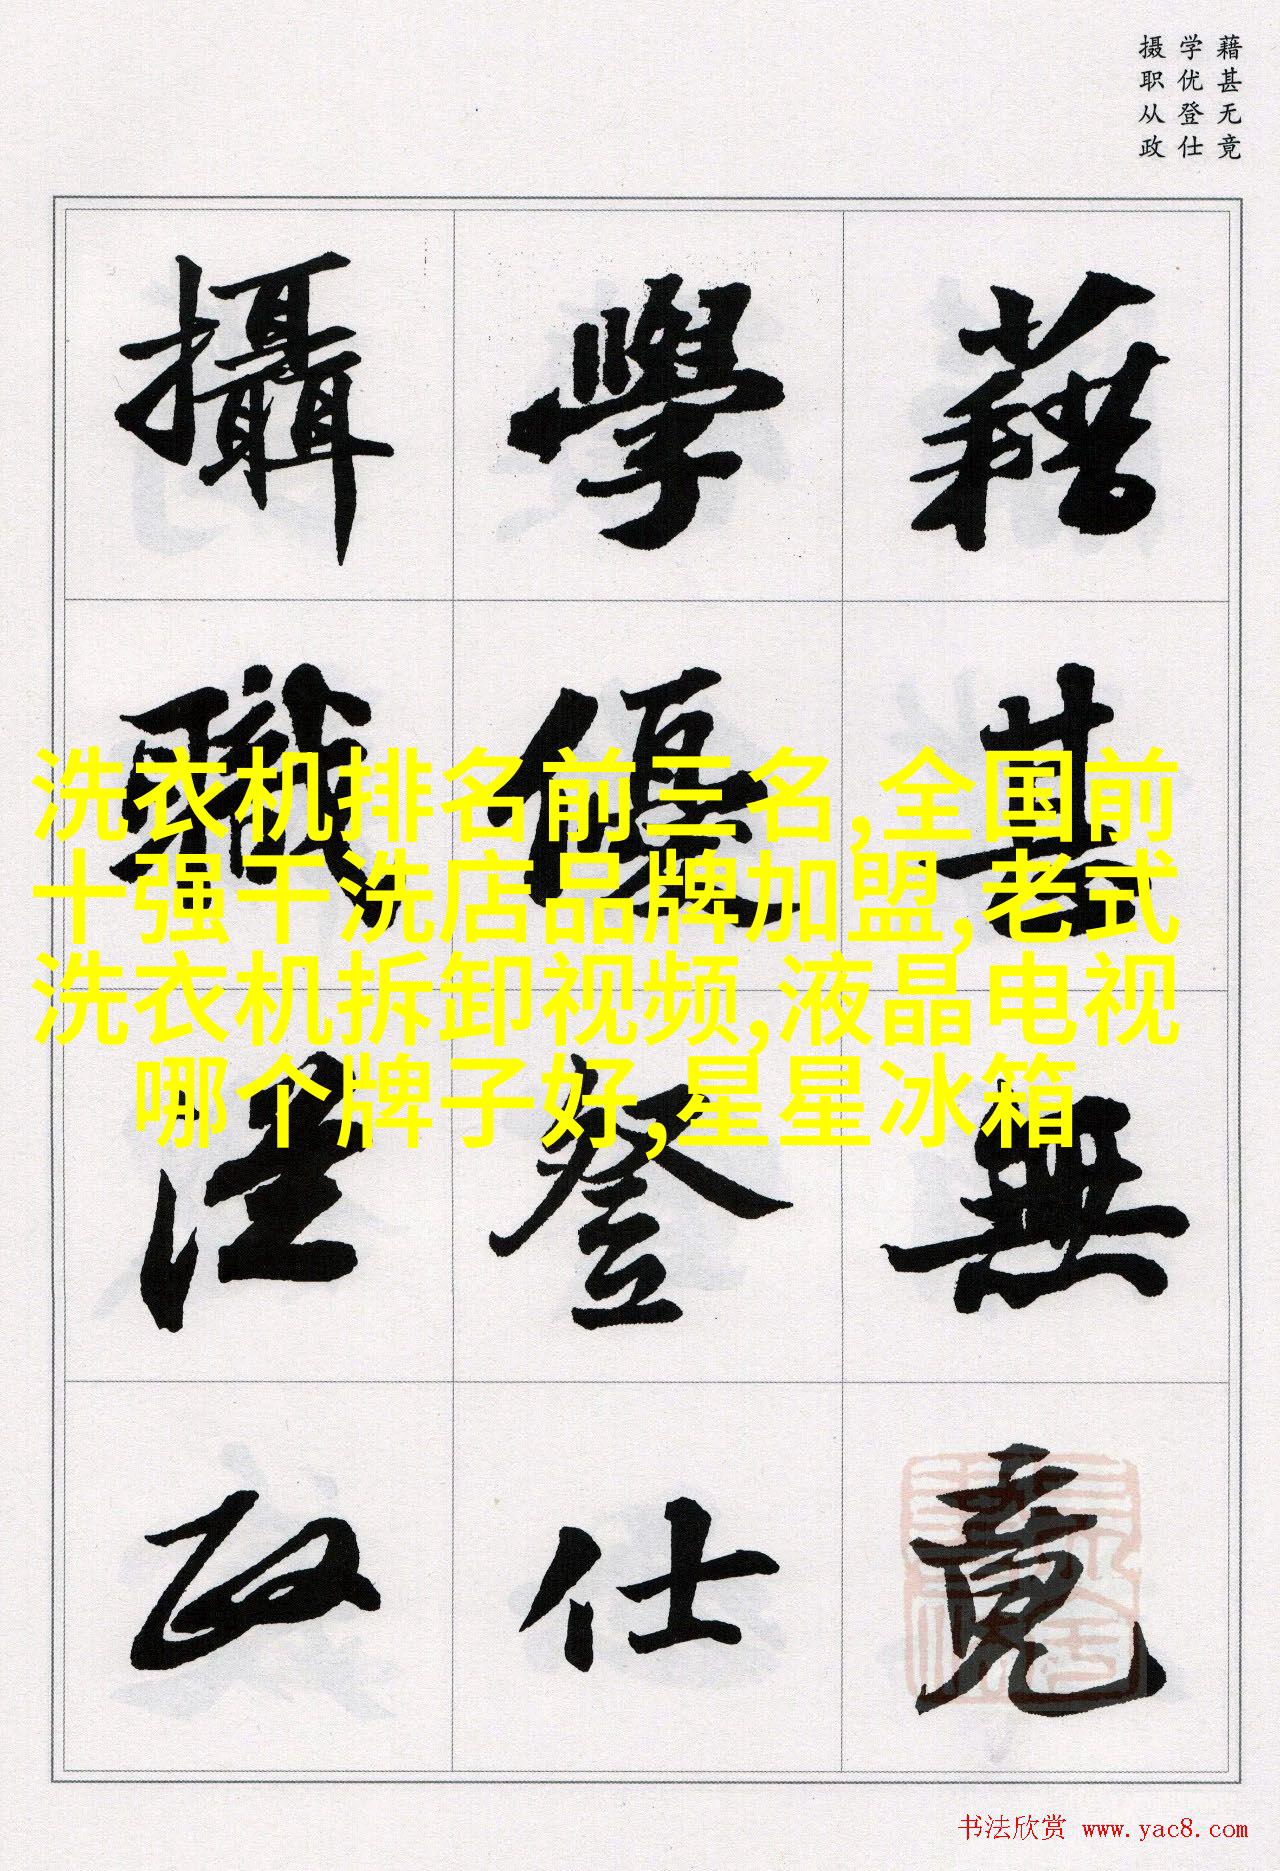 藉甚无竟
学优登仕
摄职从政
藉甚無竟
學優登仕
攝職從政
洗衣机排名前三名,全国前
十强干洗店品牌加盟,老式
洗衣机拆卸视频,液晶电视
哪个牌子好,星星冰箱
书法欣赏 www.yac8.com